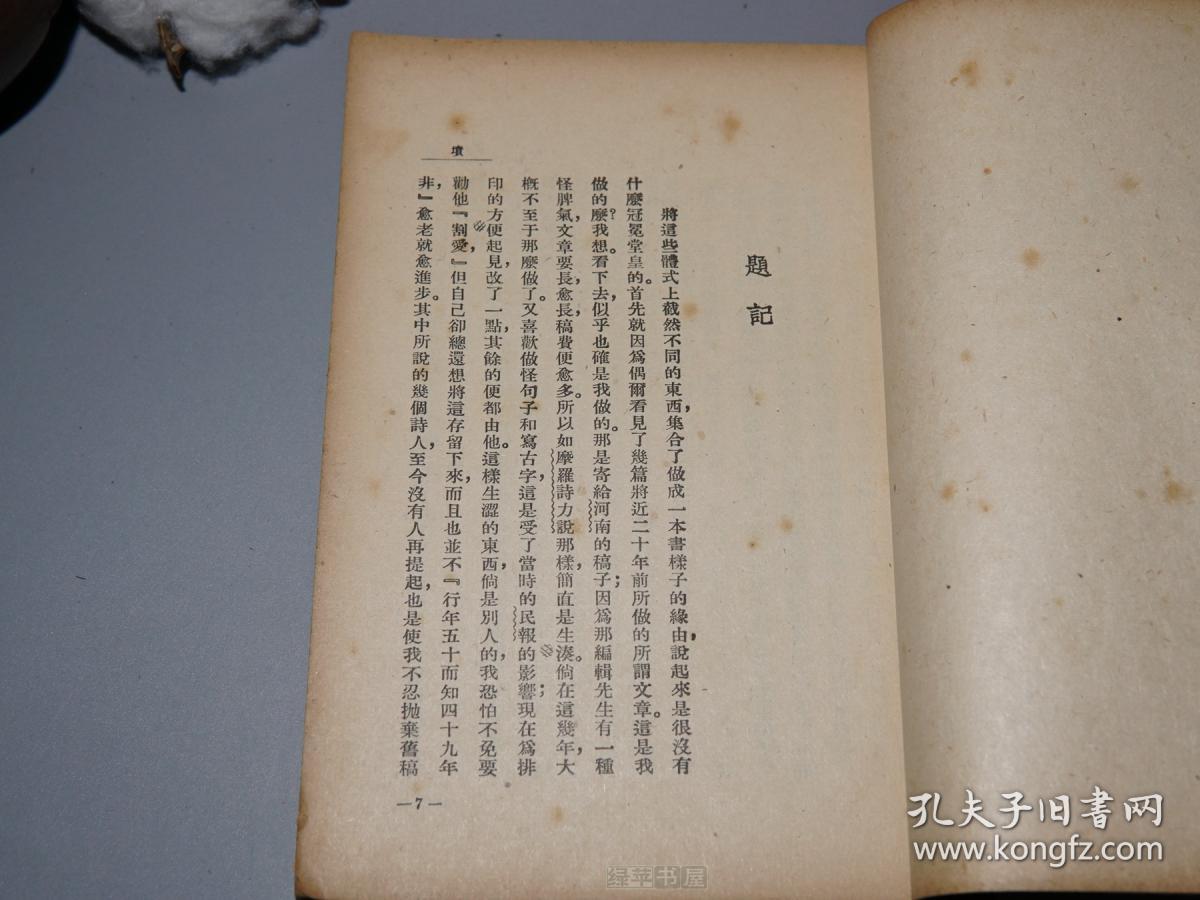 墳
題記
將這些體式上截然不同的東西,集合了做成一本書樣子的緣由,說起來是很沒有
什麼冠冕堂皇的。首先就因爲偶爾看見了幾篇將近二十年前所做的所謂文章。這是我
做的麼?我想。看下去,似乎也確是我做的。那是寄給河南的稿子;因爲那編輯先生有一種
怪脾氣,文章要長,愈長,稿費便愈多。所以如摩羅詩力說那樣,簡直是生湊。倘在這幾年,大
概不至于那麼做了。又喜歡做怪句子和寫古字,這是受了當時的民報的影響;現在爲排
印的方便起見,改了一點,其餘的便都由他。這樣生澀的東西,倘是別人的,我恐怕不免要
勸他『割愛,』但自己卻總還想將這存留下來,而且也並不『行年五十而知四十九年
非,』愈老就愈進步。其中所說的幾個詩人,至今沒有人再提起,也是使我不忍拋棄舊稿
—7—
孔夫子旧書网
www.kongfz.com
绿苹书屋